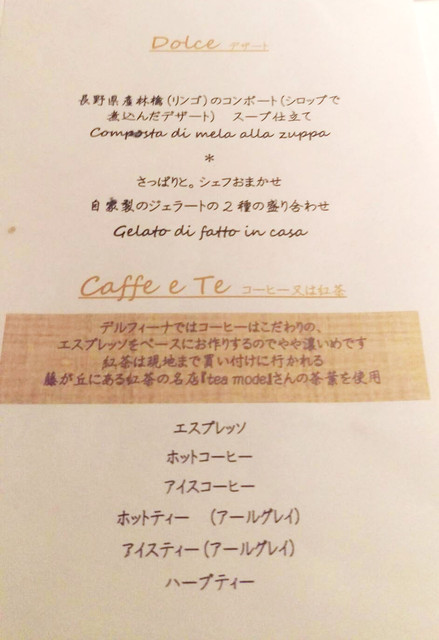 Dolce デザート
長野県産林檎(リンゴ)のコンポート(シロップで
煮込んだデザート) スープ仕立て
Composta di mela alla zuppa
*
さっぱりと。シェフおまかせ
自家製のジェラートの2種の盛り合わせ
Gelato di fatto in casa
Caffe e Te コーヒー又は紅茶
デルフィーナではコーヒーはこだわりの、
エスプレッソをベースにお作りするのでやや濃いめです
紅茶は現地まで買い付けに行かれる
藤が丘にある紅茶の名店『tea mode』さんの茶葉を使用
エスプレッソ
ホットコーヒー
アイスコーヒー
ホットティー (アールグレイ)
アイスティー(アールグレイ)
ハーブティー